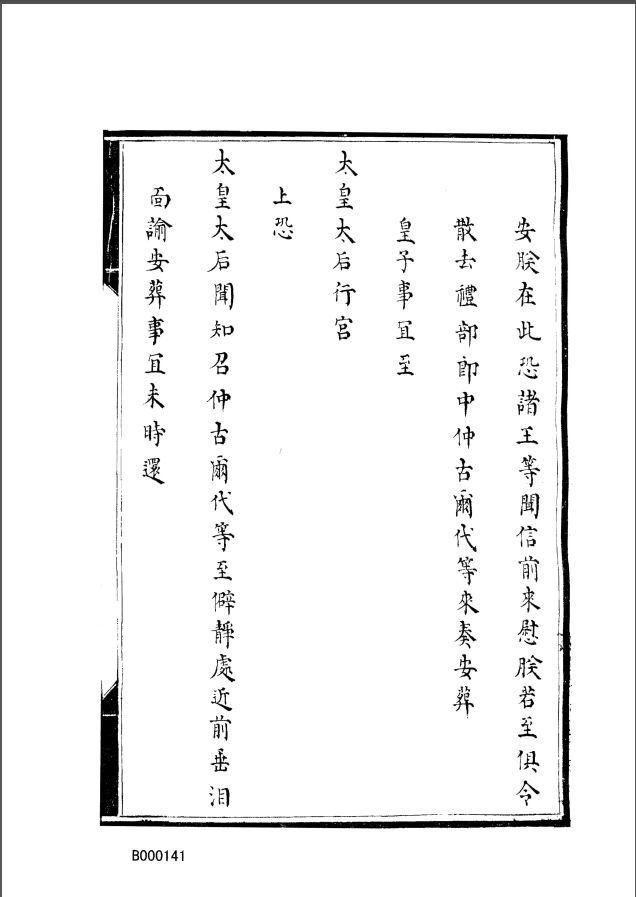 安朕在此恐諸王等聞信前來慰朕若至俱令
散去禮部郎中仲古爾代等來奏安葬
皇子事宜至
太皇太后行宮
上恐
太皇太后聞知召仲古爾代等至僻靜處近前垂泪
面諭安葬事宜未時還
B000141